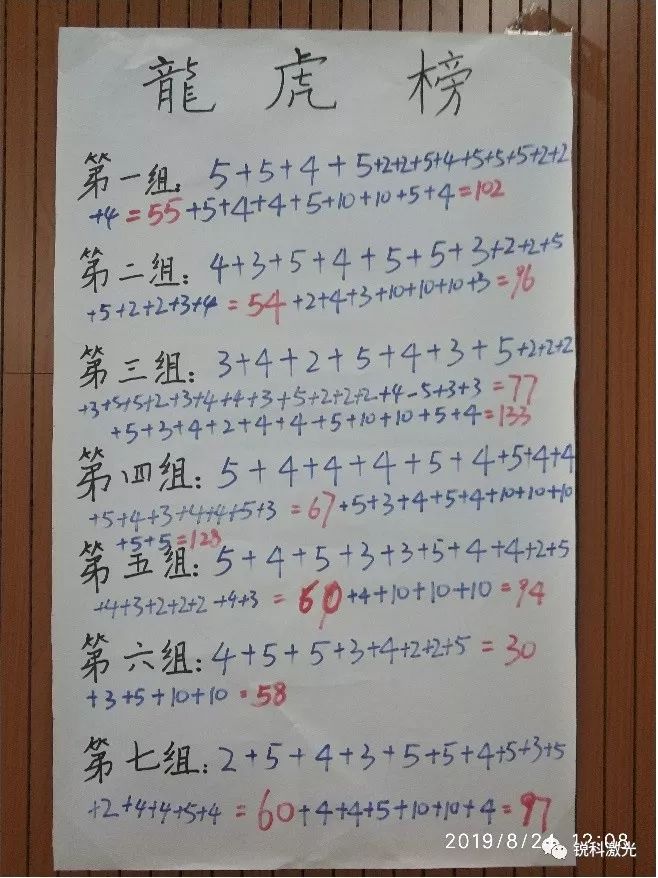 龍虎榜
第一组: 5+5+4+5+2+2+5+4+5+5+5+2+2
+4=55+5+4+4+5+10+10+5+4=102
第二组: 4+3+5+4+5+5+3+2+2+5
+5+2+2+3+4=54+2+4+3+10+10+10+3=96
第三组: 3+4+2+5+4+3+5+2+2+2
+3+5+5+2+3+4+4+3+5+2+2+2+4-5+3+3=77
+5+3+4+2+4+4+5+10+10+5+4=133
第四组: 5+4+4+4+5+4+5+4+4
+5+4+3+4+4+5+3=67+5+3+4+5+4+10+10+10
+5+5=128
第五组: 5+4+5+3+3+5+4+4+2+5
+4+3+2+2+2+4+3=60+4+10+10+10=94
第六组: 4+5+5+3+4+2+2+5=30
+3+5+10+10=58
第七组: 2+5+4+3+5+5+4+5+3+5
+2+4+4+5+4=60+4+4+5+10+10+4=97
2019/8/24 12:08
锐科激光